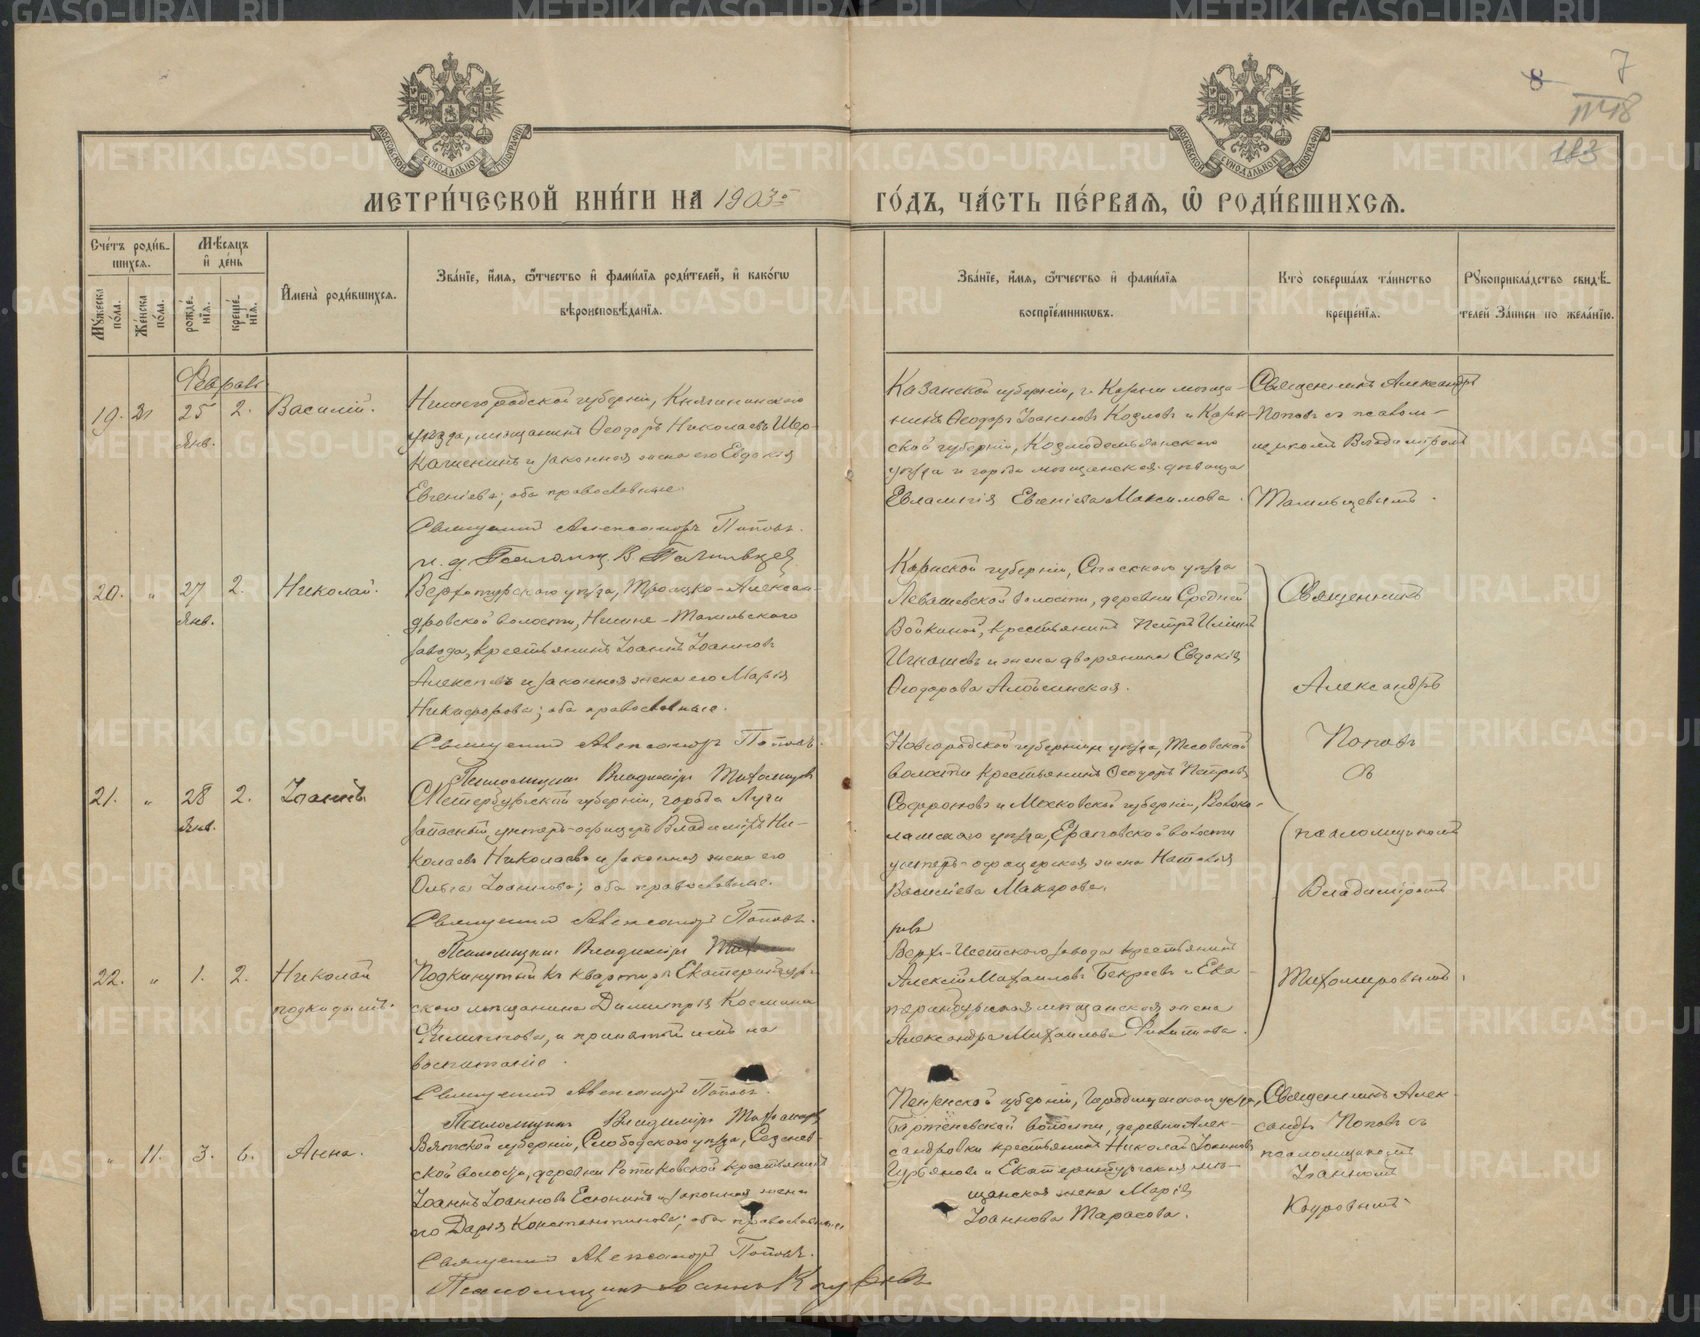 8 7
183
МЕТРИ́ЧЕСКОЙ КНИ́ГИ НА 1903й
ГО́ДЪ, ЧА́СТЬ ПЕ́РВАЯ, Ѡ РОДИ́ВШИХСЯ.
Счéтъ родúв-
шихся.
Мꙋ́жеска пóла.
Жéнска пóла.
Мѣ́сяцъ
и҆ дéнь
рождé-
нїя.
крещé-
нїя.
И҆менà родúвшихся.
Звáнїе, и҆́мя, ѻ҆́тчество и҆ фамúлїя родúтелей, и҆ какóгѡ
вѣроисповѣ́данїя.
Звáнїе, и҆́мя, ѻ҆́тчество и҆ фамúлїя
воспрїéмникѡвъ.
Ктò совершáлъ тáинство
крещéнїя.
Рꙋкоприклáдство свидѣ́-
телей зáписи по желáнїю.
Феврал
19.
25
Янв.
2.
Василій.
Нижегородской губерніи, Княгининского
уѣзда, мѣщанинъ Ѳеодоръ Николаевъ
и законная жена его Евдокія
Евгеніева; оба православные.
Священникъ Александръ Поповъ.
и. д. Псаломщ. В.
Казанской губерніи, г. Казани мѣща-
нинъ Ѳеодоръ Іоанновъ Козловъ и Казан-
ской губерніи, Козмодемьянского
уѣзда и города мѣщанская дѣвица
Евлампія Евгеніева Максимова.
Священникъ Александръ
Поповъ съ псалом-
щикомъ Владиміромъ
20. „
27
Янв.
2.
Николай.
Верхотурского уѣзда, Троицко-Алексан-
дровской волости, Нижне-Тагильского
завода, крестьянинъ Іоаннъ Іоанновъ
Алексѣевъ и законная жена его Марія
Никифорова; оба православные.
Священникъ Александръ Поповъ.
Псаломщикъ Владиміръ Тихомировъ
Казанской губерніи, Спасского уѣзда
Левашевской волости, деревни Средней
крестьянинъ Петръ Ильинъ
Игнатьевъ и жена дворянина Евдокія
Ѳеодорова
Священникъ
Александръ
Поповъ
съ
псаломщикомъ
Владиміромъ
Тихомировымъ.
21. „
28
Янв.
2.
Іоаннъ
СПетербургской губерніи, города Луги
запасный унтеръ-офицеръ Владиміръ Ни-
колаевъ Николаевъ и законная жена его
Ольга Іоаннова; оба православные.
Священникъ Александръ Поповъ.
Псаломщикъ Владиміръ
Новгородской губерніи и уѣзда, Тесовской
волости крестьянинъ Ѳеодоръ Петровъ
Софроновъ и Московской губерніи, Волоко-
ламского уѣзда, Яраповской волости
унтеръ-офицерская жена Наталія
Васильева Макарова.
22. „
1.
2.
Николай
подкидышъ.
Подкинутый къ квартирѣ Екатеринбург-
ского мѣщанина Димитрія Косьмина
Филиппова, и принятый имъ на
воспитаніе.
Священникъ Александръ Поповъ.
Псаломщикъ Владиміръ Тихомировъ
Верхъ-Исетского завода крестьянинъ
Алексій Михаиловъ Бекреевъ и Ека-
теринбургская мѣщанская жена
Александра Михаилова Филиппова.
„ 11.
3.
6.
Анна.
Вятской губерніи, Слободского уѣзда,
ской волости, деревни Ротиковской крестьянинъ
Іоаннъ Іоанновъ Есюнинъ и законная жена
его Дарія Константинова; оба православные
Священникъ Александръ Поповъ.
Псаломщикъ Іоаннъ Коуровъ
Пензенской губерніи, Городищенского уѣзда,
волости, деревни Алек-
сандровки крестьянинъ Николай Іоанновъ
и Екатеринбургская мѣ-
щанская жена Марія
Іоаннова Тарасова.
Священникъ Алек-
сандръ Поповъ съ
псаломщикомъ
Іоанномъ
Коуровымъ.